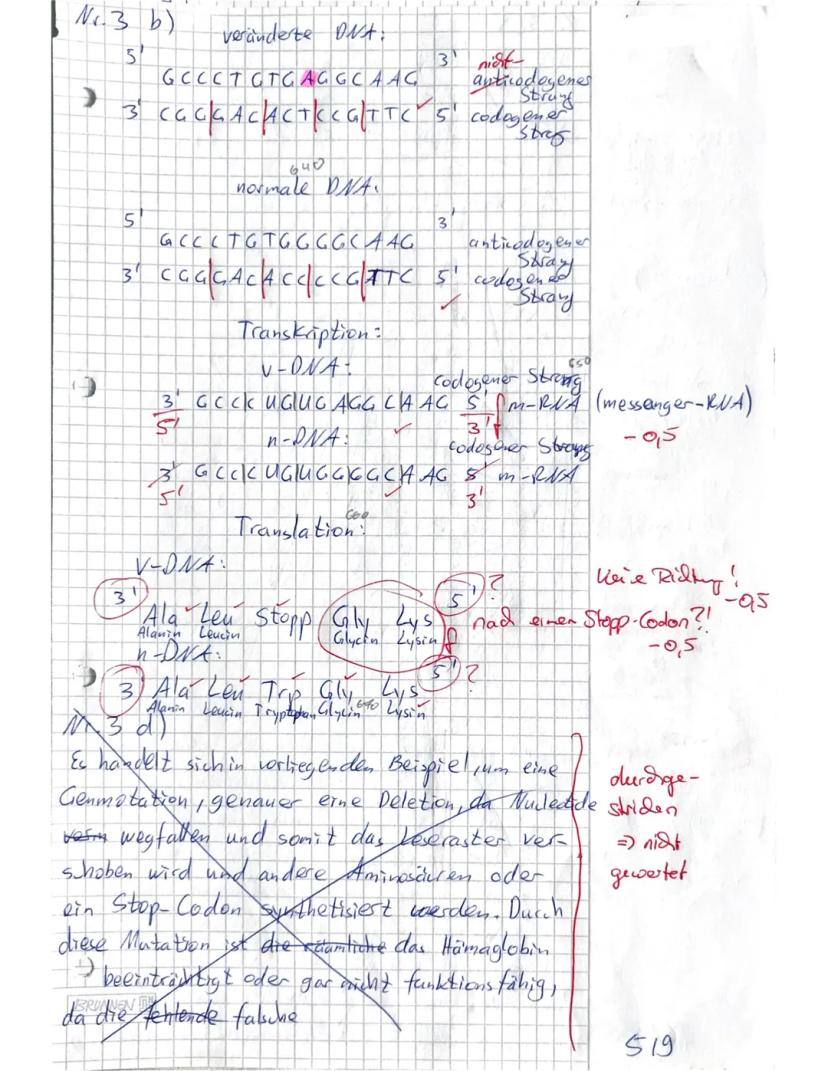 Nr. 3 b)
veränderte DNA:
5' 3' nicht-
GCCCTGTGAGGCAAG anticodogenes
Strang
3' CGG|GAC|ACT|CCG|TTC ✓ 5' codogener
Strag
640
normale DNA:
5' 3'
GCCCTGTGGGGCAAG anticodogener
Strang
3' CGG|GAC|ACC|CCG|TTC 5' codogener
✓ Strang
Transkription:
650
v-DNA: codogener Strang
3' GCC|C UG|UG AGG C|A AG 5' f m-RNA (messenger-RNA)
5' ✓ 3' -0,5
n-DNA: codogener Strang
3' GCC|C UG|UG G|GG C|A AG 5' m-RNA
5' ✓ 3'
660
Translation:
v-DNA: Keine Richtung!
3' 5' ? -0,5
Ala Leu Stopp Gly Lys f nach einem Stopp-Codon?!
Alanin Leucin Glycin Lysin -0,5
n-DNA: 5' ?
3' Ala Leu Trp Gly Lys
Alanin Leucin Tryptophan Glycin 670 Lysin
Nr. 3 d)
Es handelt sich in vorliegenden Beispiel, um eine
Genmotation, genauer eine Deletion, da Nucleotide
wegfallen und somit das Leseraster ver-
schoben wird und andere Aminosäuren oder
ein Stop-Codon synthetisiert werden. Durch
diese Mutation ist die räumliche das Hämaglobin
beeinträchtigt oder gar nicht funktionsfähig,
BRUNNEN
da die fehlende falsche
durchge-
strichen
=> nicht
gewertet
5/9